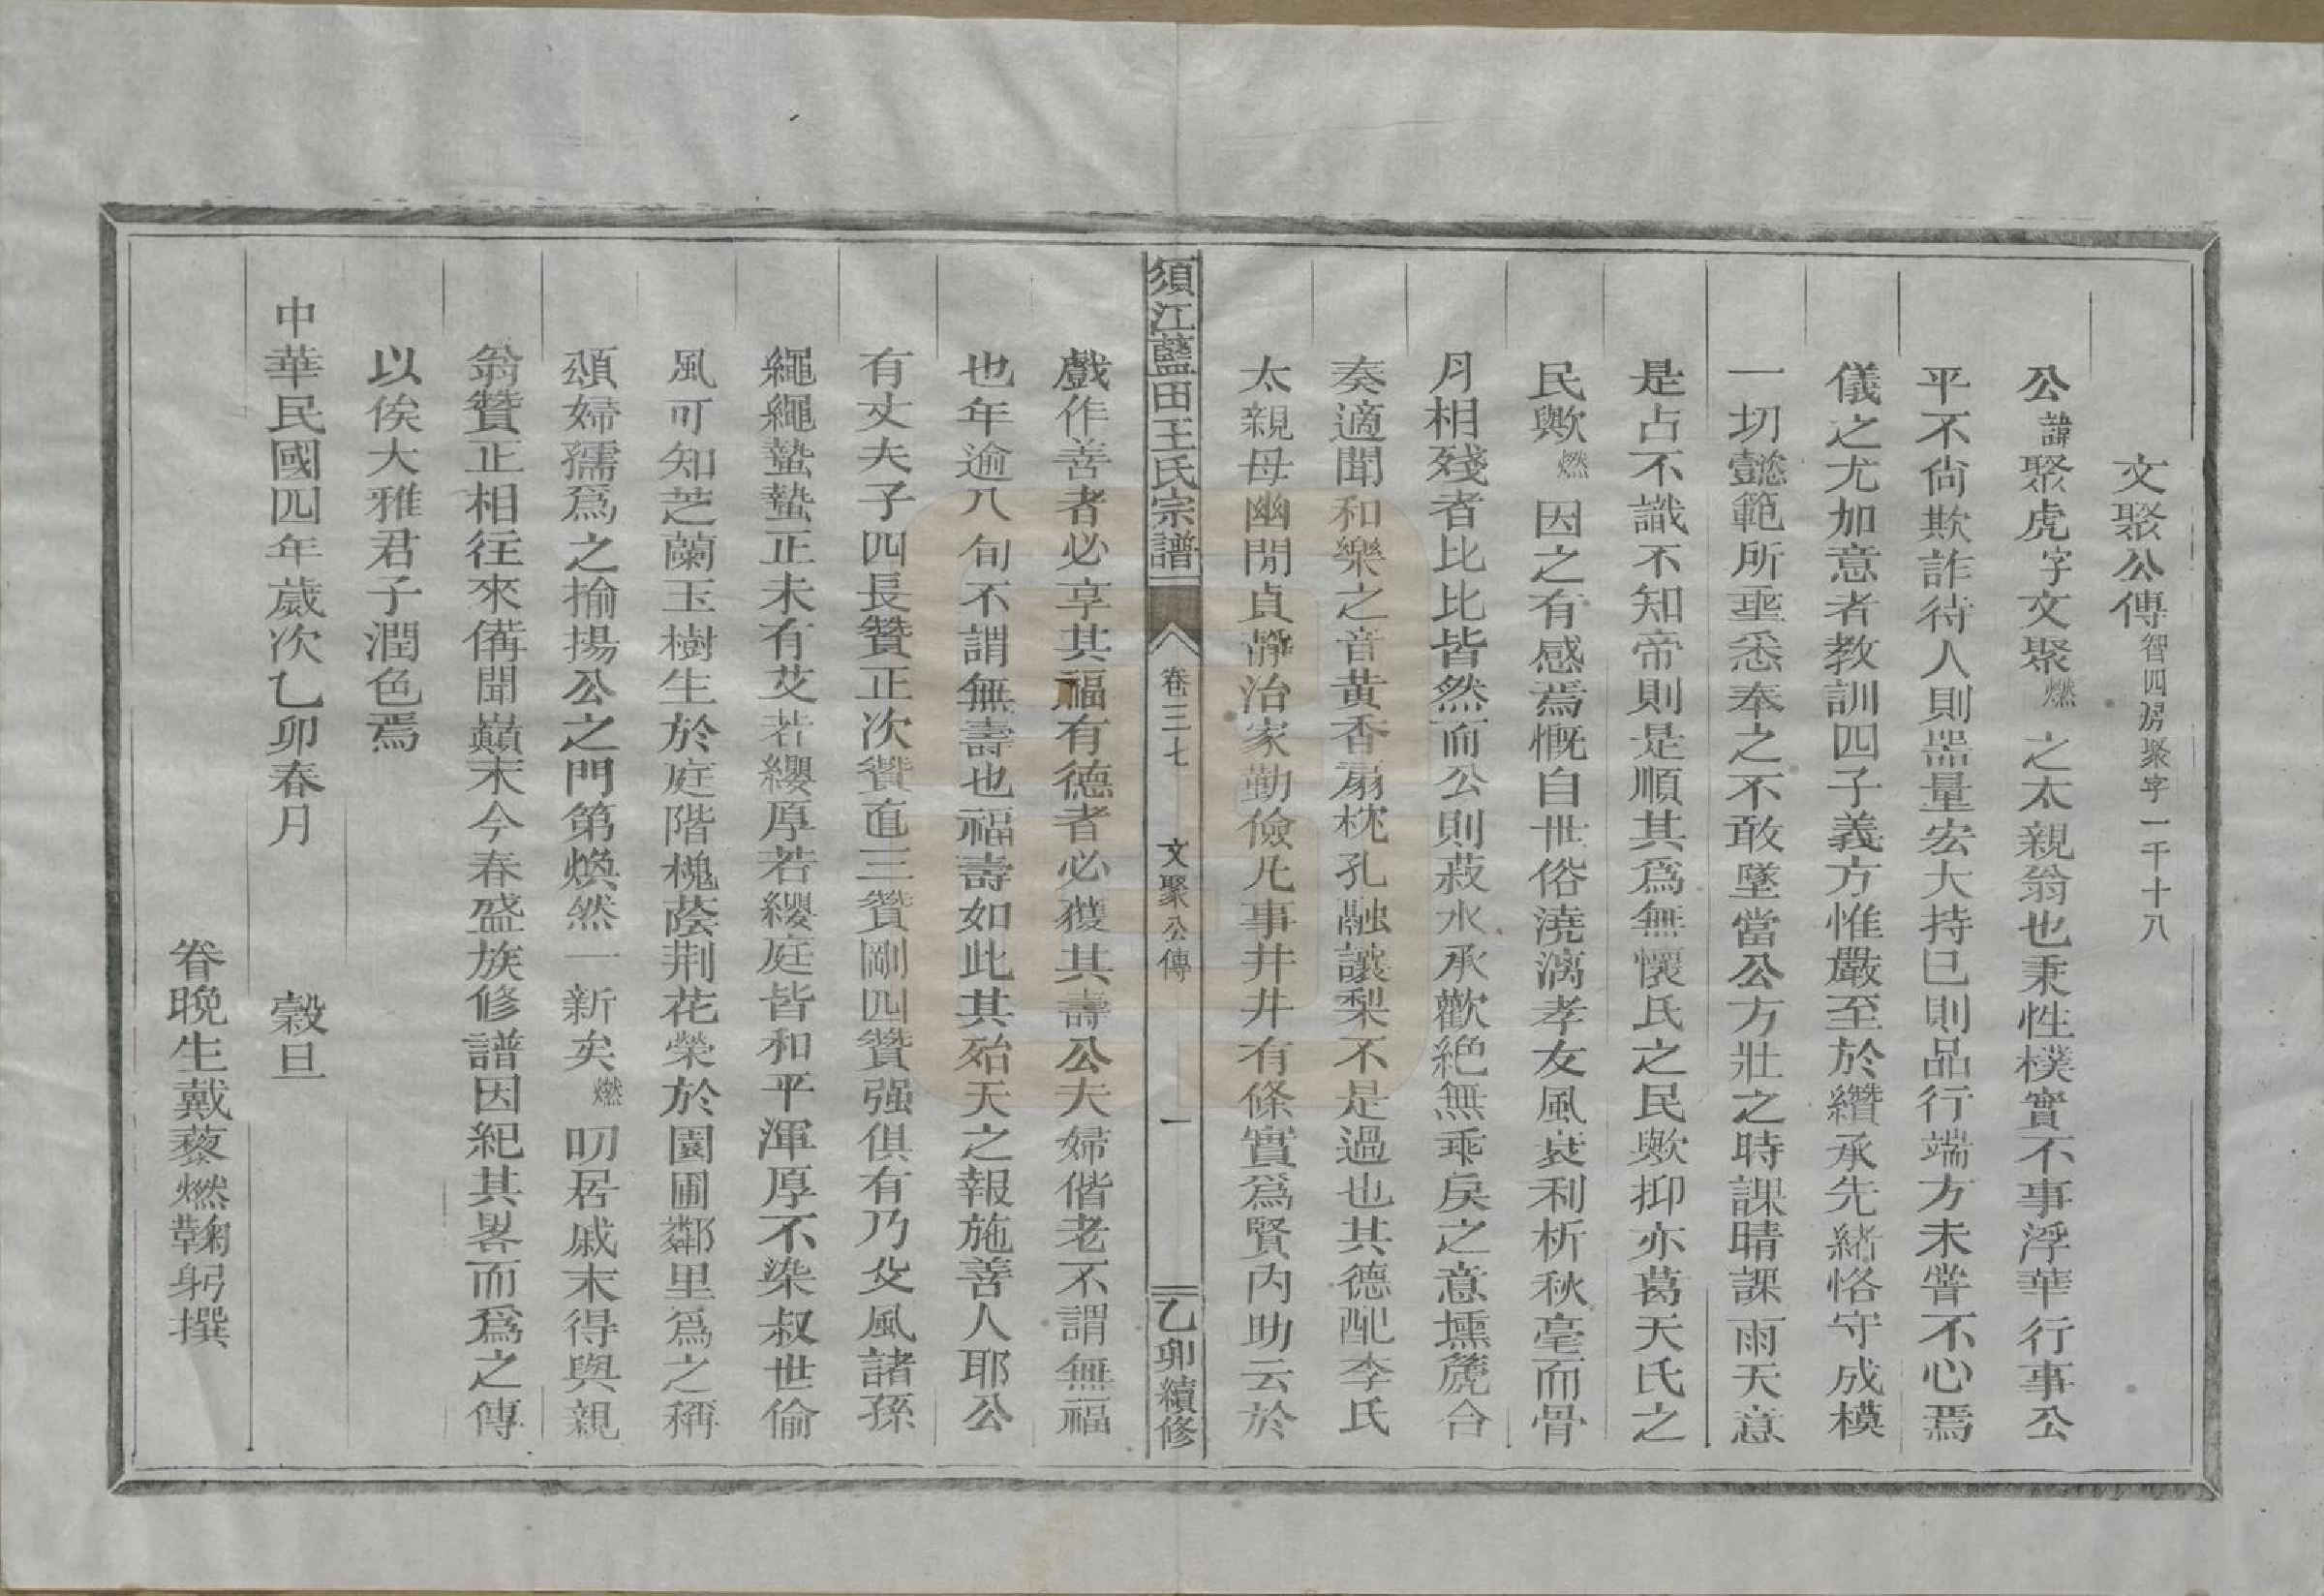 文聚公傳智四房聚字一千十八
公諱聚虎字文聚燃之太親翁也秉性樸實不事浮華行事公
平不尙欺詐待人則器量宏大持己則品行端方未甞不心焉
儀之尤加意者教訓四子義方惟嚴至於纘承先緒恪守成模
一切懿範所垂悉奉之不敢墜當公方壯之時課晴課雨天意
是占不識不知帝則是順其爲無懷氏之民歟抑亦葛天氏之
民歟燃因之有感焉慨自世俗澆漓孝友風衰利析秋毫而骨
月相殘者比比皆然而公則菽水承歡絕無乖戾之意壎篪合
奏適聞和樂之音黃香扇枕孔融讓梨不是過也其德配李氏
太親母幽閒貞靜治家勤儉凡事井井有條實爲賢内助云於
須江藍田王氏宗譜
卷三七
文聚公傳
一
乙卯續修
戲作善者必享其福有德者必獲其壽公夫婦偕老不謂無福
也年逾八旬不謂無壽也福壽如此其殆天之報施善人耶公
有丈夫子四長贊正次贊直三贊剛四贊强俱有乃父風諸孫
繩繩蟄蟄正未有艾若纓厚若纓庭皆和平渾厚不染叔世偷
風可知芝蘭玉樹生於庭階槐蔭荆花榮於園圃鄰里爲之稱
頌婦孺爲之揄揚公之門第煥然一新矣燃叨居戚末得與親
翁贊正相往來備聞巔末今春盛族修譜因紀其畧而爲之傳
以俟大雅君子潤色焉
中華民國四年歲次乙卯春月 穀旦
眷晚生戴藜燃鞠躬撰